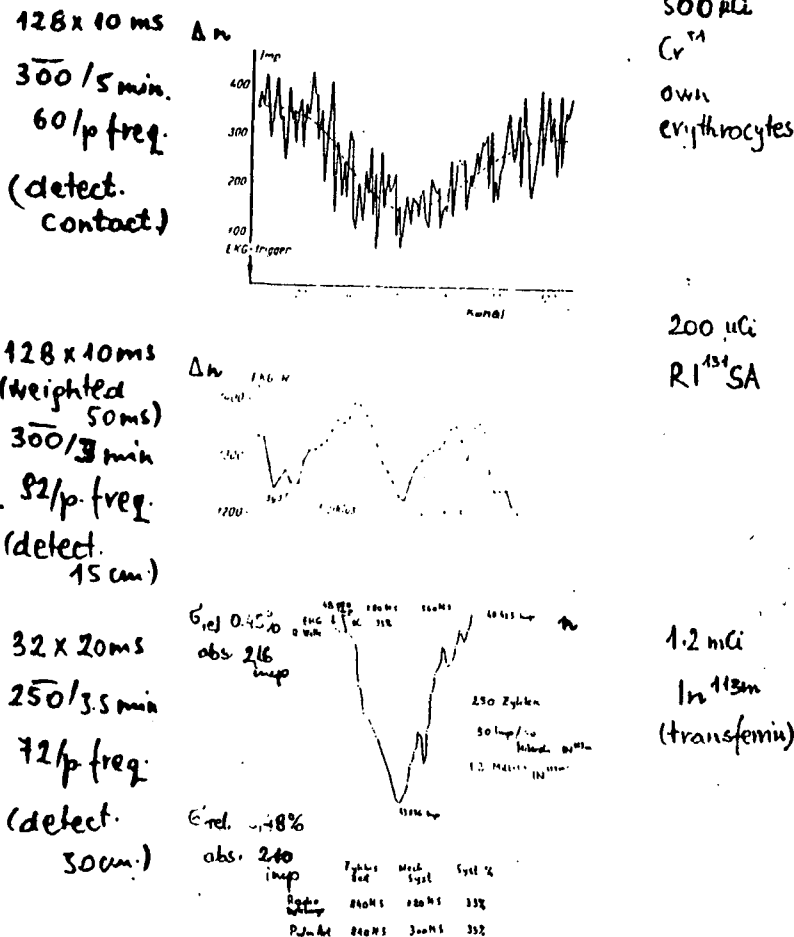 128 x 10 ms
300 / 5 min.
60/p freq.
(detect.
contact)
Δ n
Imp
400
300
200
100
EKG-trigger
Kanal
500 µCi
Cr⁵¹
own
erythrocytes
128 x 10ms
(weighted
50ms)
300/3 min
92/p. freq.
(detect.
15 cm.)
Δ n
EKG-R
1300
1200
200 µCi
RI¹³¹SA
32 x 20ms
250/3.5 min
72/p. freq.
(detect.
30cm.)
σrel 0.45%
abs. 216
imp
n
250 Zyklen
σrel. 0,48%
abs. 210
imp
Syst %
840MS 280MS 33%
Pulm Art 840MS 300MS 35%
1.2 mCi
In¹¹³ᵐ
(transferrin)